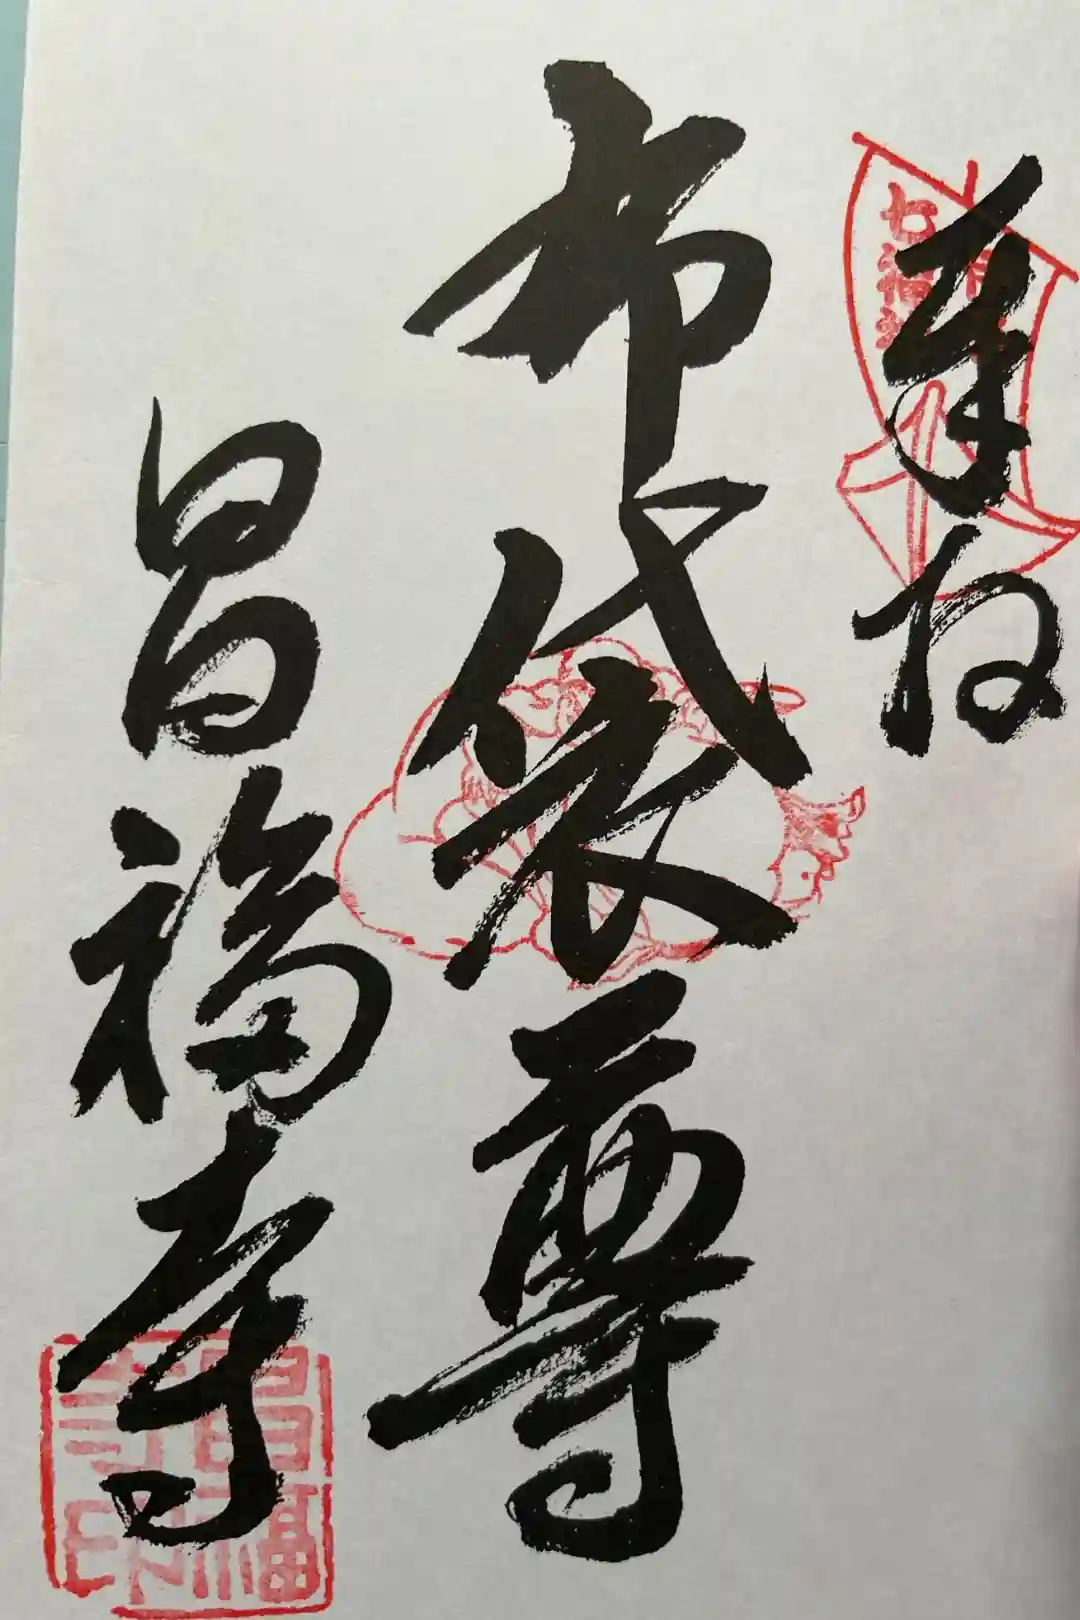 奉拝
七福神
布袋尊
昌福寺
昌福寺印